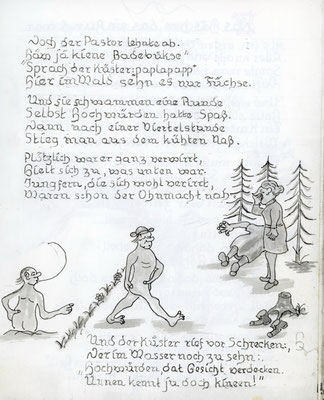 Doch der Pastor lehnte ab.
Häm ja kiene Badebükse"
"Sprach der Küster: paplapapp"
Hier im Wald sehn es nur Füchse.
Und sie schwammen eine Runde
Selbst Hochwürden hatte Spaß.
Dann nach einer Viertelstunde
Stieg man aus dem kühlen Naß.
Plötzlich war er ganz verwirrt,
Hielt sich zu, was unten war.
Jungfern, die sich wohl verirrt,
Waren schon der Ohnmacht nah.
Und der Küster rief vor Schrecken,
Der im Wasser noch zu sehn:
"Hochwürden, dat Gesicht verdecken.
Unnen kennt ju doch kineen!"